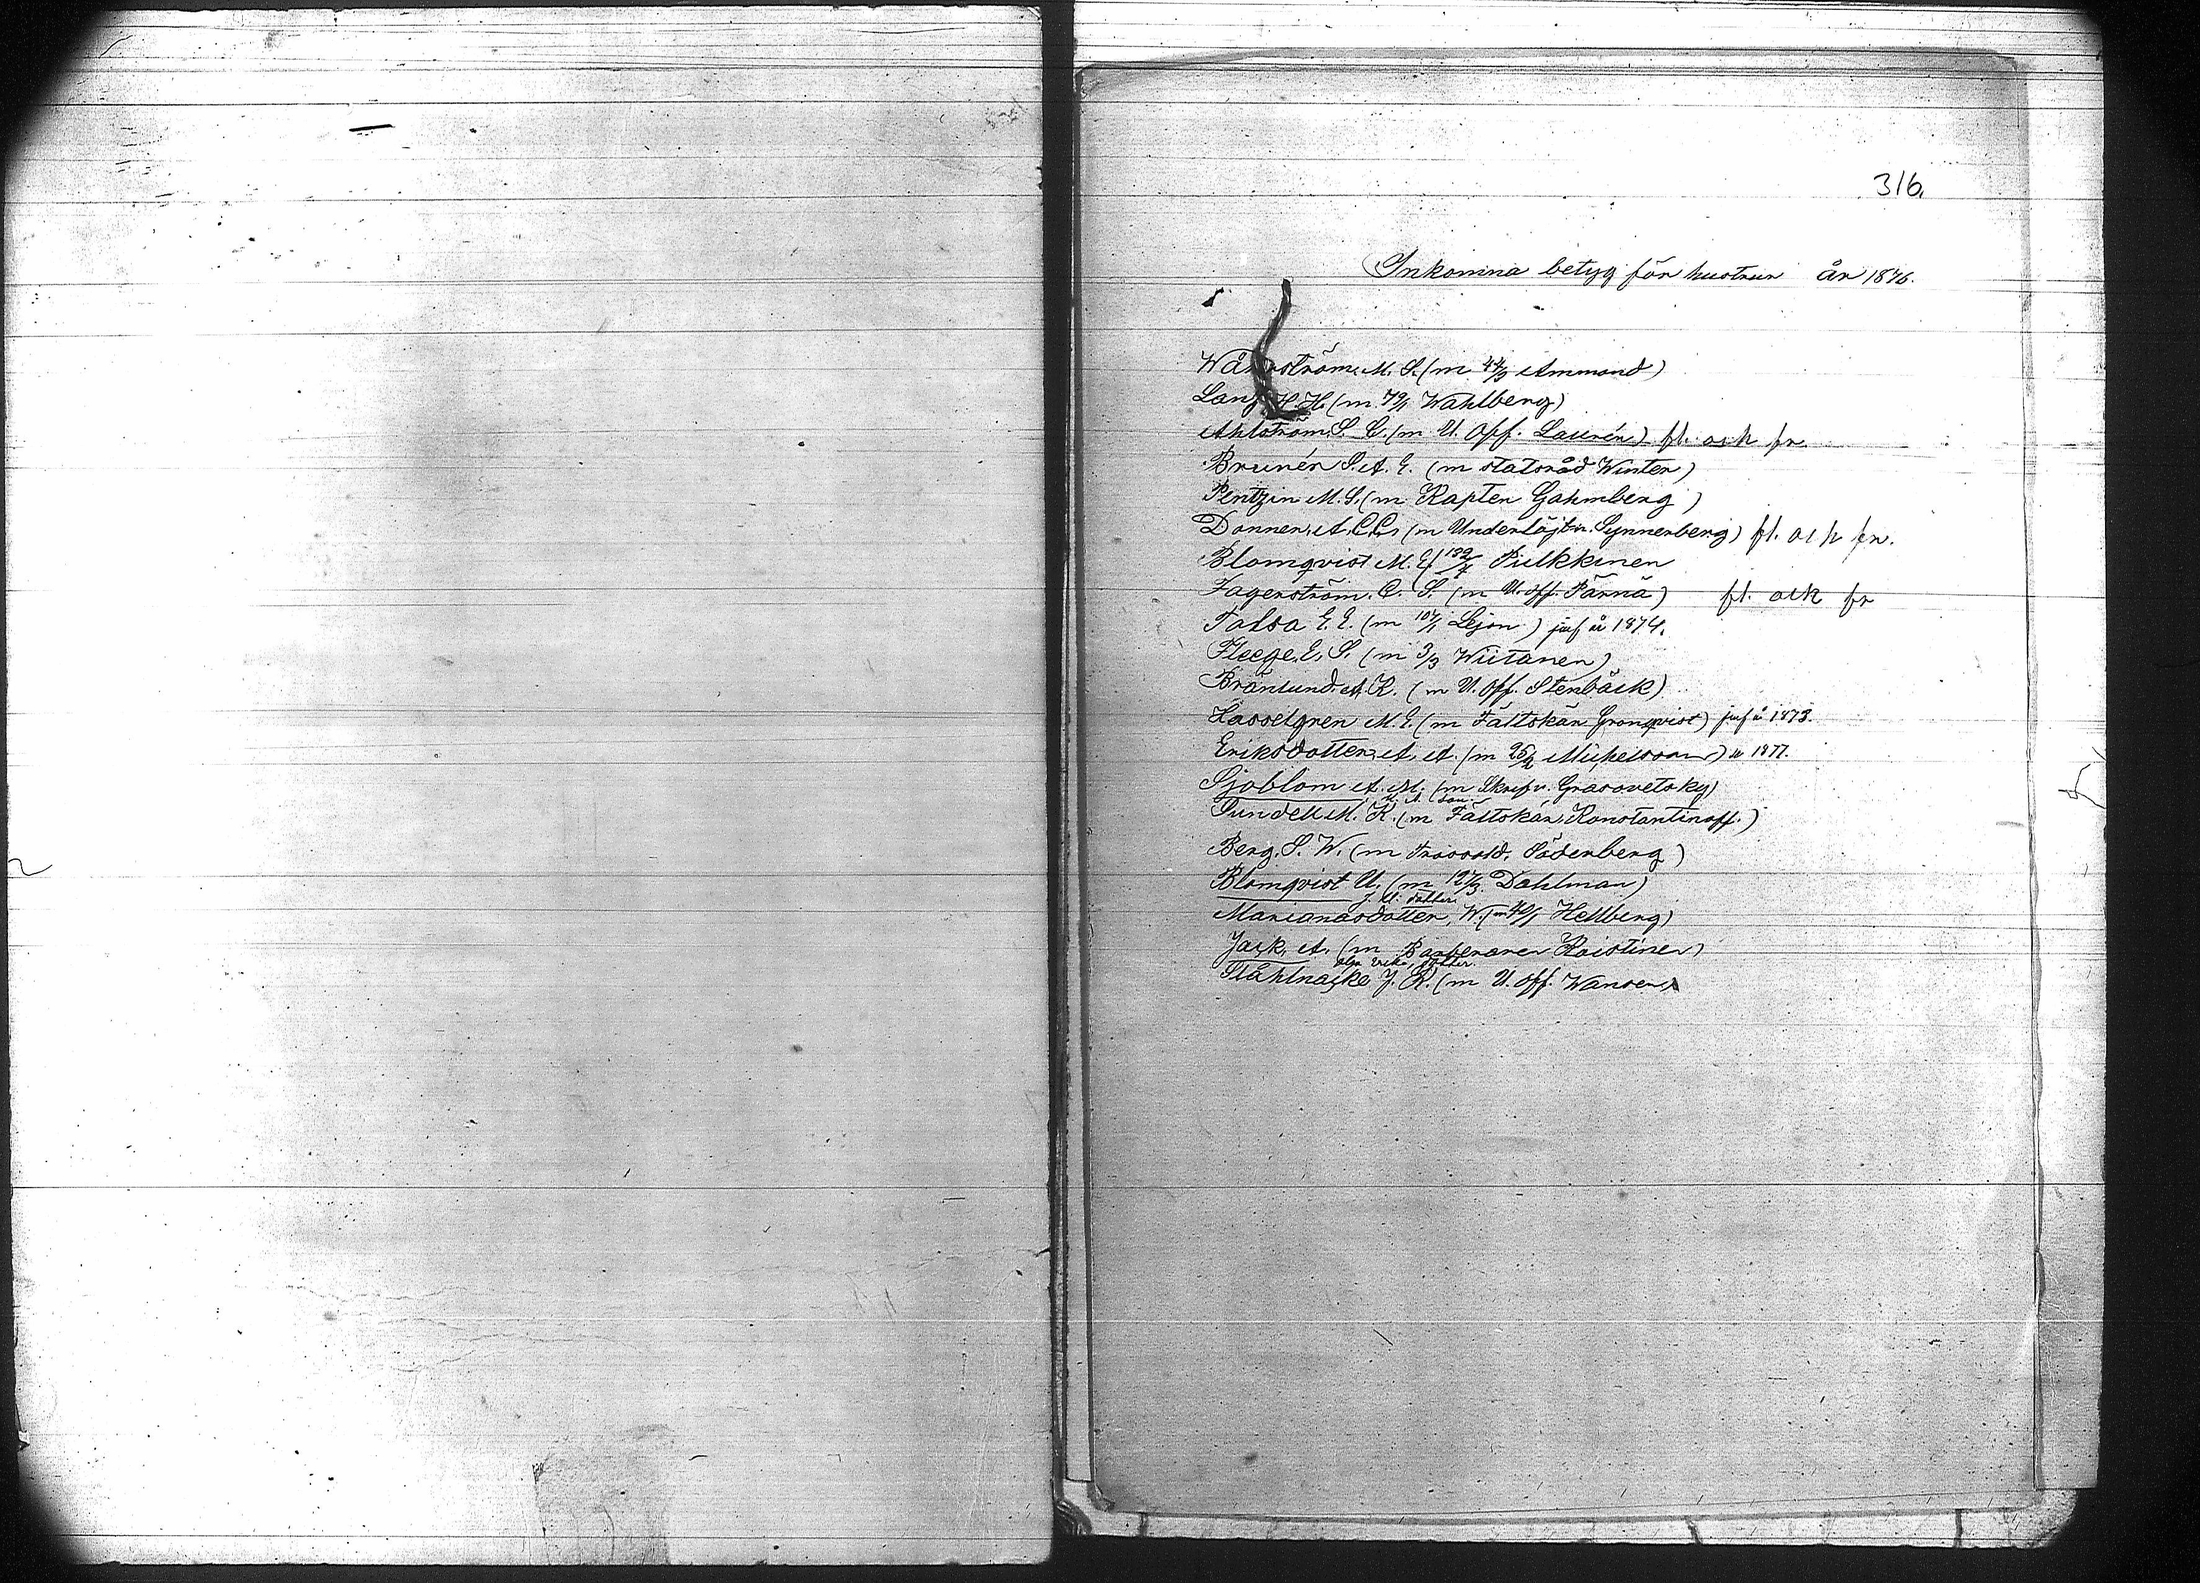 316.
Inkomna betyg för hustrur år 1876.
Wåhrström. M. S. (m 44/3 Ammond)
Lang H. H. (m. 79/1 Wahlberg)
Ahlström S. C. (m U. off. Laurén) fl. och fr.
Brunér S. A. E. (m statsråd Winter)
Pentzin M. S. (m Kapten Gahmberg)
Donner, A. C. C. (m Underlöjtn. Synnerberg) fl. och fr.
Blomqvist M. E. (192/4 Pulkkinen
Fagerström. C. S. (m U. off. Färnä) fl. och fr
E. E. (m 107/1 Lejon) jmf år 1874.
Fleege, E. S. (m 3/3 Wiitanen)
Bränlund. A. K. (m U. off. Stenbäck)
Hasselgren M. E. (m Fältskär Grönqvist) jmf år 1873.
Eriksdotter, A. A. (m 95/2 Michelsson) år 1877.
Sjöblom A. M. (m Skrifv. Grasovetsky)
Sundell M. K. (m Fältskär Konstantinoff.)
Berg, S. W. (m Söderberg)
Blomqvist U. (m 127/3. Dahlman)
J. U. dotter
Marianasdotter, W. (m 40/1 Hellberg)
Jack, A. (m Koistinen)
dotter.
Ståhlnacke J. K. (m U. off. Wansen)